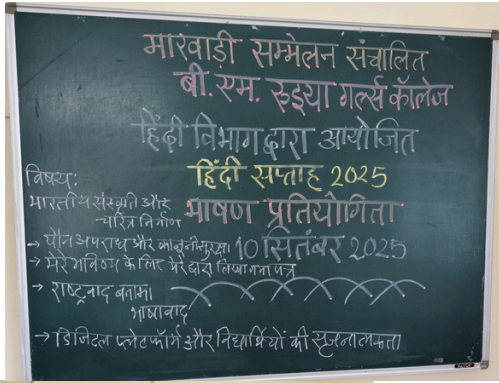 मारवाड़ी सम्मेलन संचालित
बी. एम. रुइया गर्ल्स कॉलेज
हिंदी विभाग द्वारा आयोजित
हिंदी सप्ताह 2025
भाषण प्रतियोगिता
10 सितंबर 2025
विषय:
भारतीय संस्कृति और
चरित्र निर्माण
→ यौन अपराध और कानूनी सुरक्षा
→ मेरे भविष्य के लिए मेरे द्वारा लिखा गया पत्र
→ राष्ट्रवाद बनाम
भाषावाद
→ डिजिटल प्लेटफॉर्म और विद्यार्थियों की सृजनात्मकता